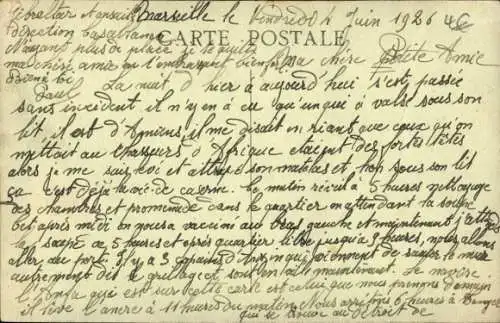 Marseille le Vendredi 4 Juin 1926
CARTE POSTALE
Ma chère Petite Amie
La nuit d'hier à aujourd'hui s'est passée
sans incident il n'y en a eu qu'un qui a valsé sous son
lit, il est d'Amiens, il me disait en riant que ceux qu'on
mettait au chasseurs d'Afrique étaient des fortes têtes
alors je me suis levé et attrapé son matelas et hop sous son lit
ça c'est déjà la vie de caserne. Le matin réveil à 5 heures nettoyage
des chambres et promenade dans le quartier en attendant la soupe
et après midi on nous a vacciné au bras gauche et maintenant j'attends
la soupe de 5 heures et après quartier libre jusqu'à 9 heures, nous allons
aller au port. Il y a 3 qui viennent de sauter le mur
autrement dit le grillage et
l' qui est sur cette carte est celui que nous prenons demain
il lève l'ancre à 11 heures du matin. Nous arrivons 6 heures à
qui se trouve au détroit de
Gibraltar et ensuite
direction Casablanca
N'ayant plus de place je te quitte
ma chère amie en t'embrassant bien fort
Bien à toi
Paul